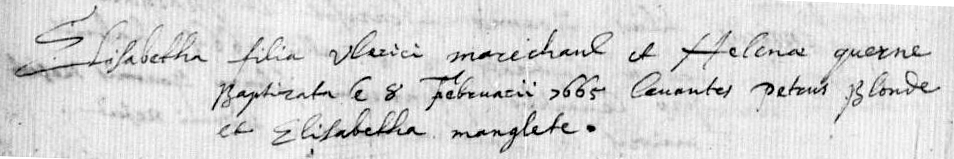 Elisabetha filia Vlrici marichaul et Helenæ querne
Baptizata le 8 februarii 1665 leuantes petrus Blonde
et Elisabetha manglete.